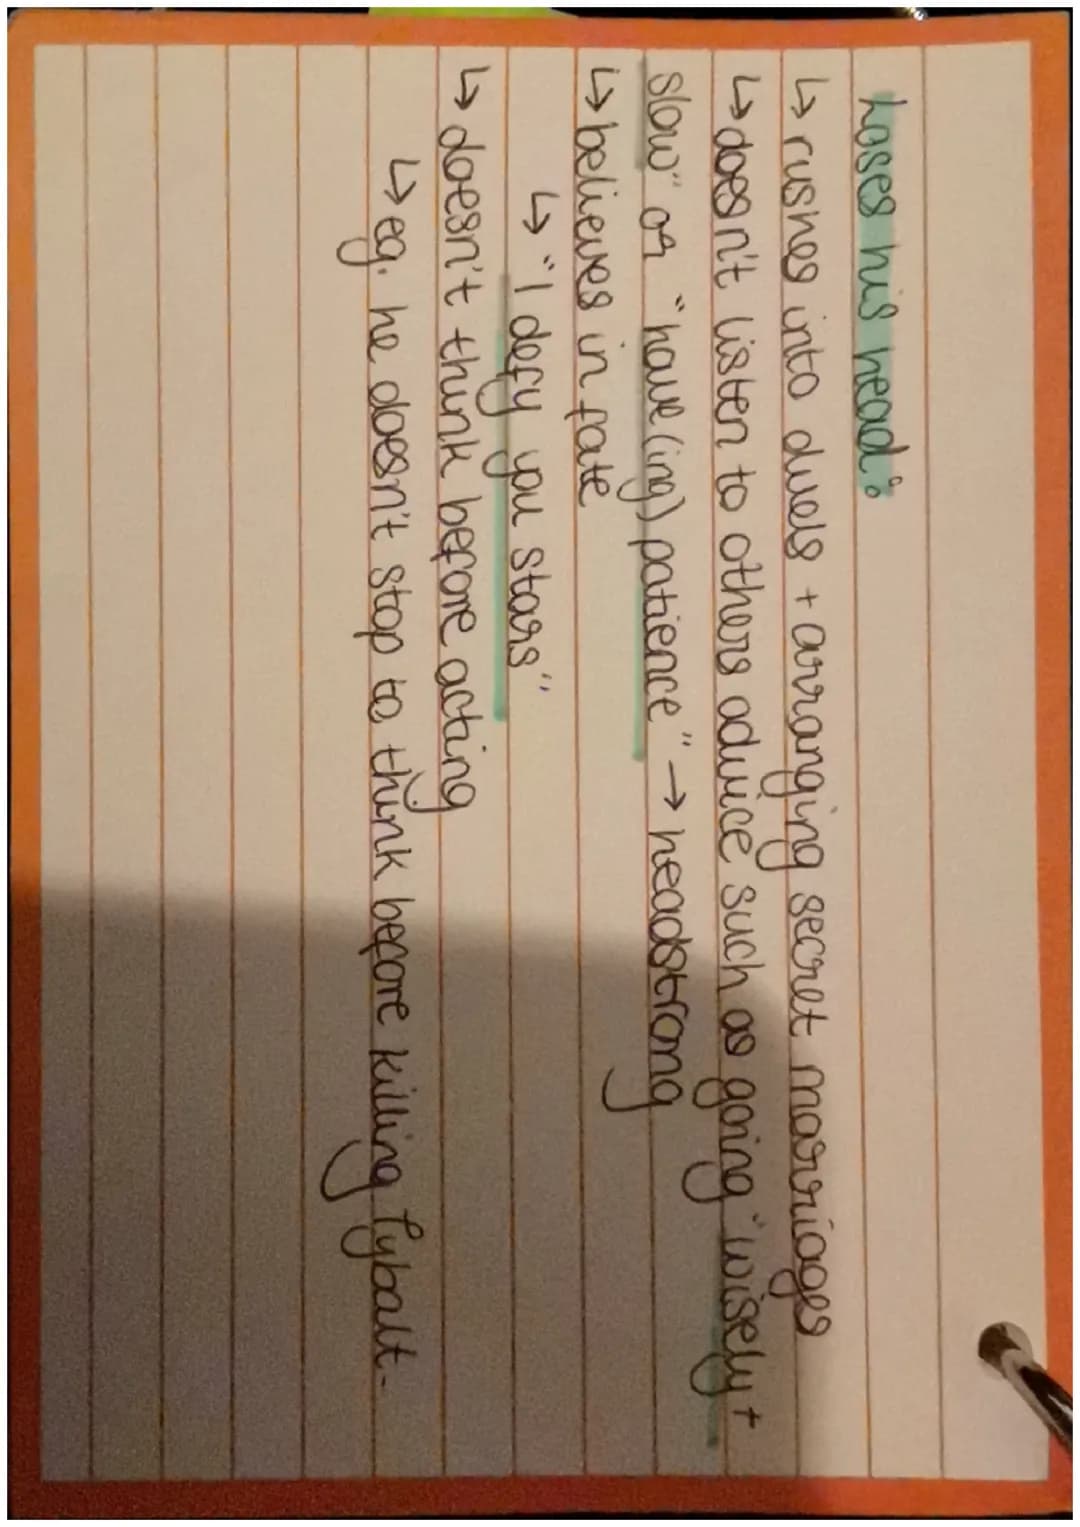 Loses his head:
↳ rushes into duels + arranging secret marriages
↳ doesn't listen to others advice such as going "wisely +
slow" or "have (ing) patience" → headstrong
↳ believes in fate
↳ "I defy you stars"
↳ doesn't think before acting
↳ eg. he doesn't stop to think before killing Tybalt.